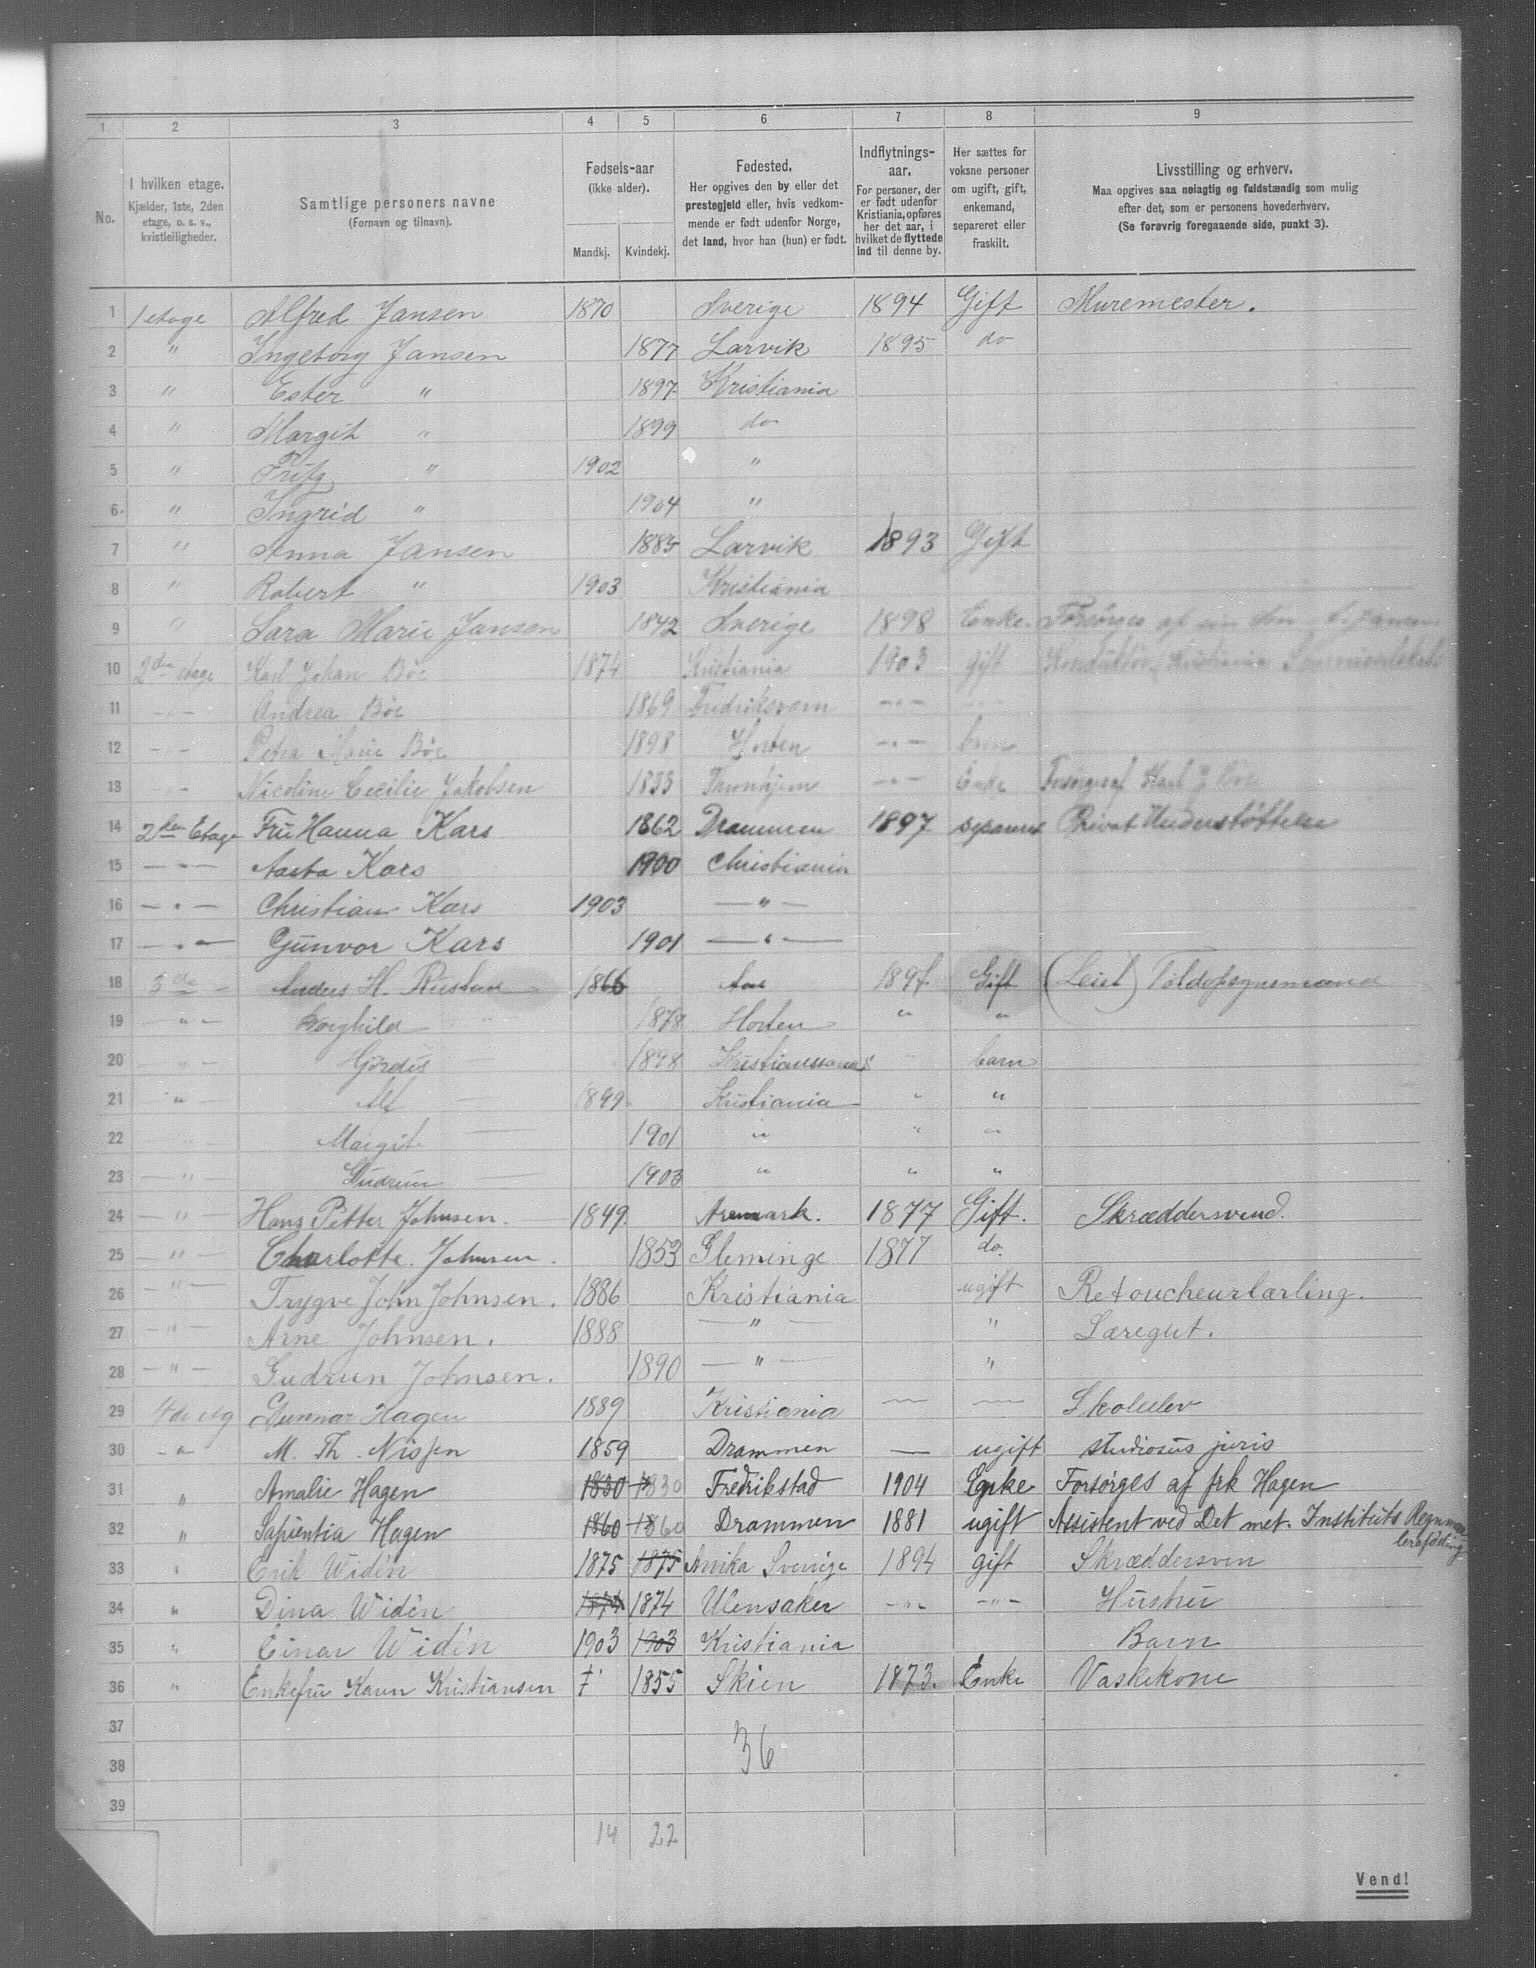 1 2 3 4 5 6 7 8 9
No. I hvilken etage. Kjælder, 1ste, 2den etage, o. s. v., kvistleiligheder. Samtlige personers navne (Fornavn og tilnavn). Fødsels-aar (ikke alder). Mandkj. Kvindekj. Fødested. Her opgives den by eller det prestegjeld eller, hvis vedkommende er født udenfor Norge, det land, hvor han (hun) er født. Indflytnings-aar. For personer, der er født udenfor Kristiania, opføres her det aar, i hvilket de flyttede ind til denne by. Her sættes for voksne personer om ugift, gift, enkemand, separeret eller fraskilt. Livsstilling og erhverv. Maa opgives saa nøiagtig og fuldstændig som mulig efter det, som er personens hovederhverv. (Se forøvrig foregaaende side, punkt 3).
1 1 etage Alfred Jansen 1870 Sverige 1894 Gift Muremester.
2 " Ingeborg Jansen 1877 Larvik 1895 do
3 " Ester " 1897 Kristiania
4 " Margit " 1899 do
5 " Fritz " 1902 "
6 " Ingrid " 1904 "
7 " Anna Jansen 1885 Larvik 1893 Gift
8 " Robert " 1903 Kristiania
9 " Sara Marie Jansen 1842 Sverige 1898 Enke. Forsørges af sin søn A. Jansen
10 2den etage Karl Johan Bøe 1874 Kristiania 1903 gift Konduktør, Kristiania
11 -"- Andrea Bøe 1869 Fredriksværn -"- -"-
12 -"- Petra Marie Bøe 1898 Horten -"- barn
13 -"- Nicoline Cecilie Jakobsen 1833 Thronhjem -"- Enke Forsørges af Karl J Bøe
14 2den Etage Fru Hanna Kars 1862 Drammen 1897 separert Privat Understøttelse
15 -"- Aasta Kars 1900 Christiania
16 -"- Christian Kars 1903 -"-
17 -"- Gunvor Kars 1901 -"-
18 3die - Anders H. Rustad 1866 Aas 1897. Gift (Leiet) Toldopsynsmand
19 -"- Borghild - 1878 Horten " "
20 -"- Hjørdis - 1898 Kristianssand S " barn
21 -"- Alf - 1899. Kristiania " "
22 -"- Margit - 1901 " " "
23 -"- Gudrun - 1903 " " "
24 -"- Hans Petter Johnsen. 1849. Aremark. 1877 Gift. Skræddersvend.
25 -"- Charlotte Johnsen. 1853 Gleminge 1877 do.
26 -"- Trygve John Johnsen. 1886 Kristiania ugift Retoucheurlærling.
27 -"- Arne Johnsen. 1888 -"- " Læregut.
28 -"- Gudrun Johnsen. 1890 -"- "
29 4de etg Gunnar Hagen 1889 Kristiania — — Skoleelev
30 -"- M. Th. Nissen 1859 Drammen — ugift studiosus juris
31 " Amalie Hagen 1830 1830 Fredrikstad 1904 Enke Forsørges af frk Hagen
32 " Sapientia Hagen 1860 1860 Drammen 1881 ugift Assistent ved Det met. Instituts
33 " Erik Widén 1875 1875 Arvika Sverige 1894 gift Skræddersven
34 " Dina Widén 1874 1874 Ulensaker -"- -"- Hustru
35 " Einar Widén 1903 1903 Kristiania Barn
36 " Enkefru Karen Kristiansen 1855 Skien 1873. Enke Vaskekone
37
38 36
39
14 22
Vend!